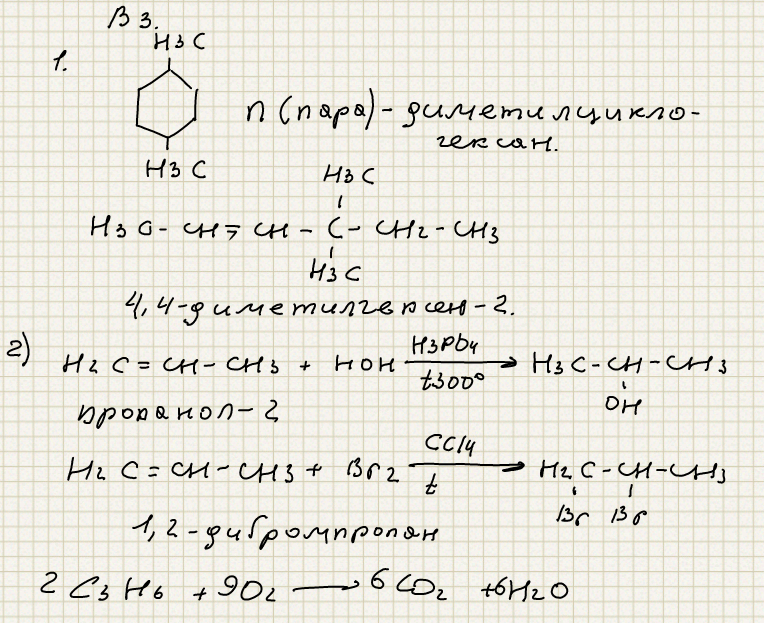 В 3.
1.
H3C
п (пара) - диметилцикло-
гексан.
H3C
H3C
H3C - CH = CH - C - CH2 - CH3
H3C
4,4-диметилгексен-2.
2)
H2C = CH - CH3 + HOH H3PO4 t300° → H3C - CH - CH3
OH
пропанол-2
H2C = CH - CH3 + Br2 CCl4 t → H2C - CH - CH3
Br Br
1,2-дибромпропан
2C3H6 + 9O2 → 6CO2 + 6H2O